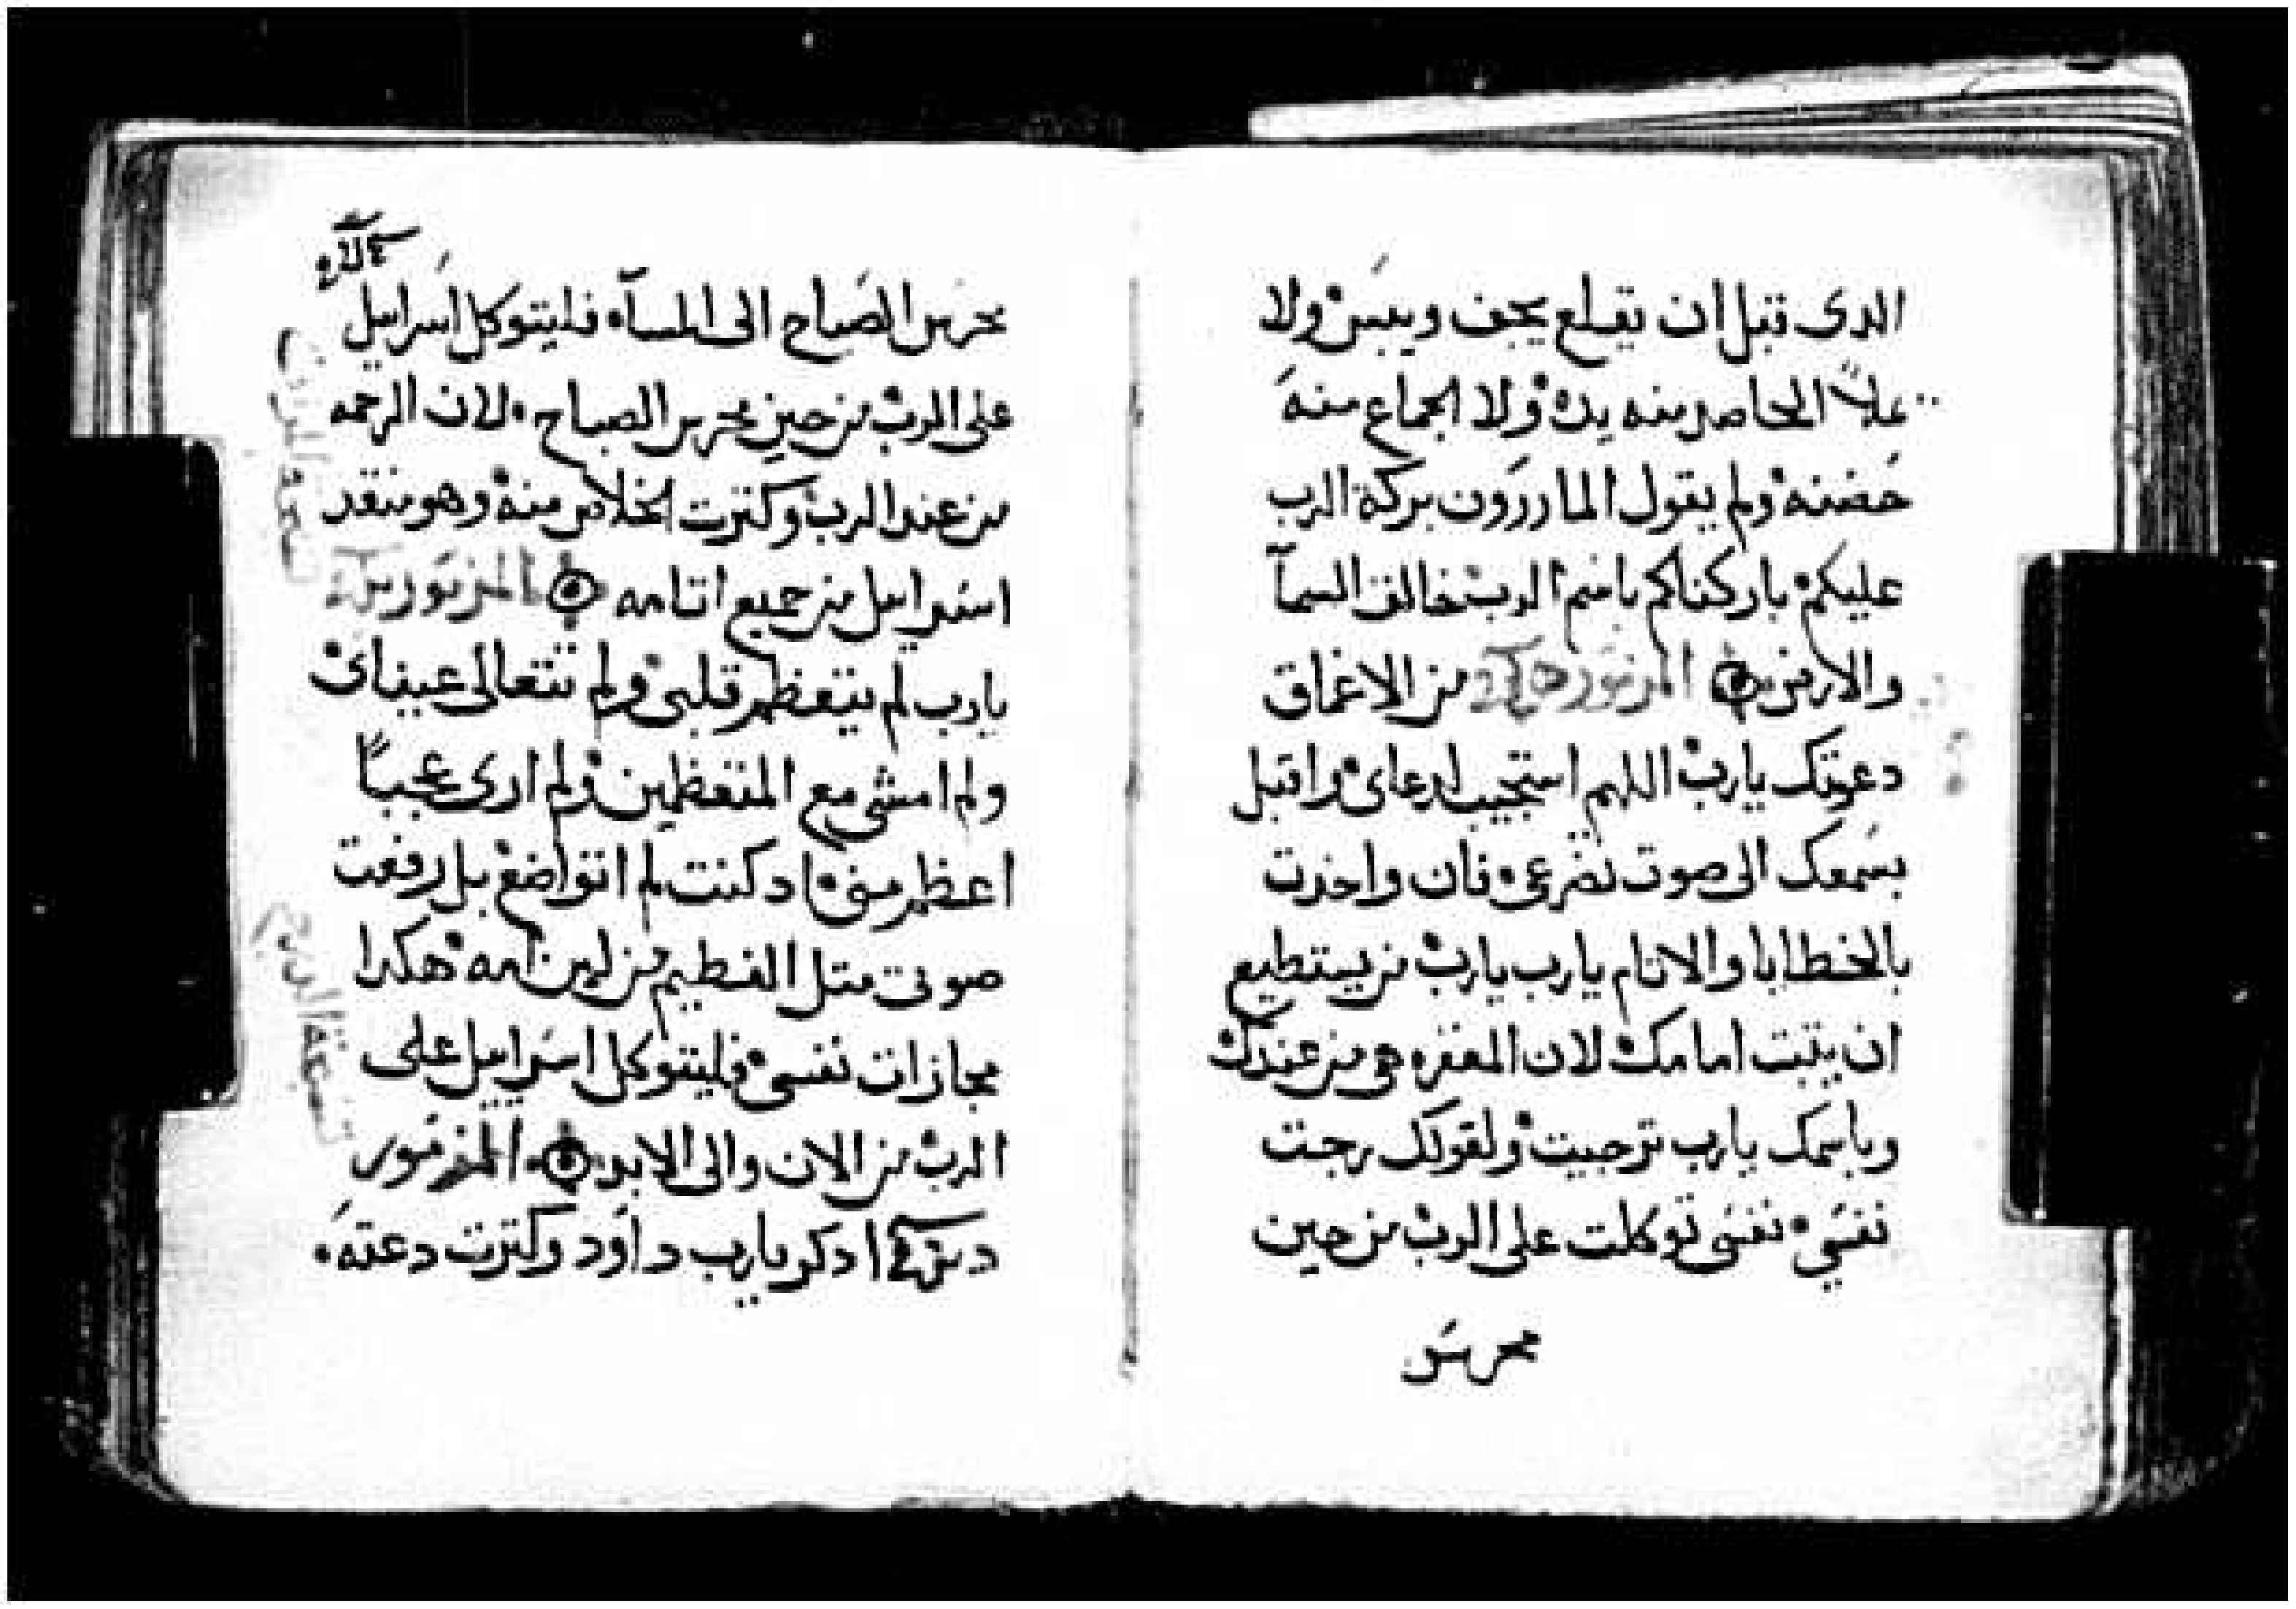 الدى قبل ان يقلع يجف وييبس ولا
يملاً الحاصد منه يده ولا الجماع منه
حضنه ولم يقول الماررون بركة الرب
عليكم باركناكم باسم الرب خالق السمآ
والارض المزمور من الاغماق
دعوتك يارب اللهم استجيب لدعاى واقبل
بسمعك الى صوت تضرعى فان واخدت
بالخطايا والاتام يارب يارب من يستطيع
ان يتبت امامك لان المغفره هى من عندك
وباسمك يارب ترجيت ولقولك رجت
نفسي نفسى توكلت على الرب من حين
محرس
محرس الصباح الى المسآء فليتوكل اسراييل
على الرب من حين محرس الصباح لان الرحمه
من عند الرب وكترت الخلاص منه وهو منقد
اسراييل من جميع اتامه المزمور
يارب لم يتعظم قلبى ولم تتعالى عيناى
ولم امشى مع المتعظمين ولم ارى عجباً
اعظم منى ادكنت لم اتواضع بل رفعت
صوتى متل الفطيم من لبن امه هكدا
مجازات نفسى فليتوكل اسراييل على
الرب من الان والى الابد المزمور
ادكر يارب داود وكترت دعته